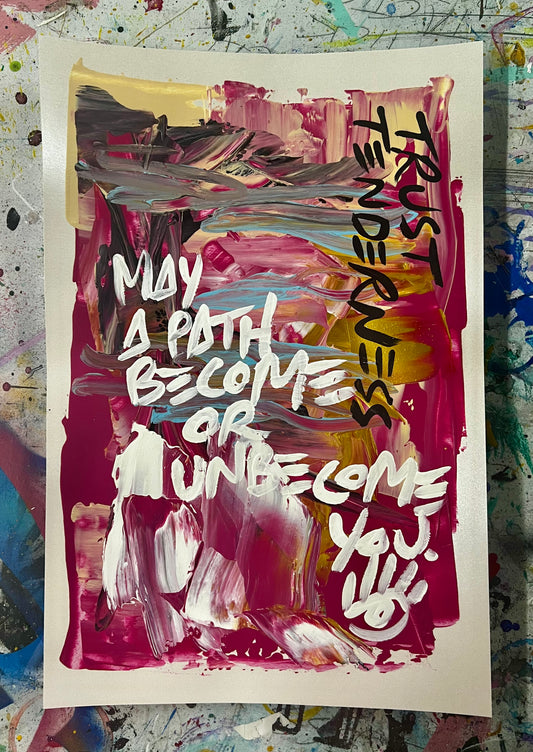 TRUST
TENDERNESS
MAY
A PATH
BECOME
OR
UNBECOME
YOU.